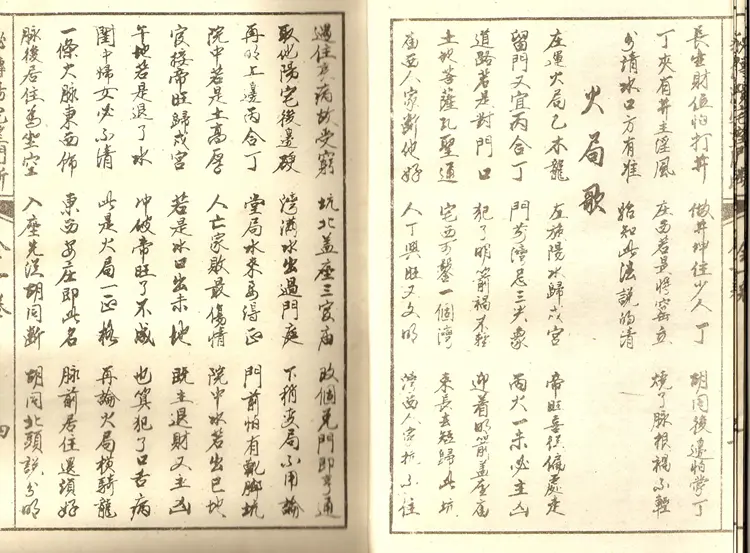 長生財位怕打井 做井坤住少人丁 胡同後邊怕掌丁
丁夾有井主淫風 庄西若是將窑立 燒了脉根禍不輕
分清水口方有准 始知此法說得清
火局歌
左運火局乙木龍 左旋陽水歸戌宮 帝旺喜從偏處走
留門又宜丙合丁 門前灣忌三尖象 丙火一未必主凶
道路若是對門口 犯了明箭禍不輕 迎着明箭盖座庙
土地菩薩孔聖通 宅西可鑿一個灣 東長去短歸此坑
庙西人家斷他好 人丁興旺又文明 灣西人家折不住
遇住多病故受窮 坑北盖座三官庙 改個兑門即亨通
取他陽宅後邊硬 灣滿水出過門庭 下稍变局不用論
再明上邊丙合丁 堂局水來要得正 門前怕有亂脚坑
院中若是土高厚 人亡家敗最傷情 院中水若出巳地
官禄帝旺歸戌宮 若是水口出未地 既主退財又主凶
午地若是退了水 冲破帝旺了不成 也算犯了口舌病
閨中婦女必不清 此是火局一正格 再論火局橫騎龍
一條火脉東西佈 東西安庄即此名 脉前居住選頭好
脉後居住為坐空 入座先從胡同斷 胡同北頭說分明